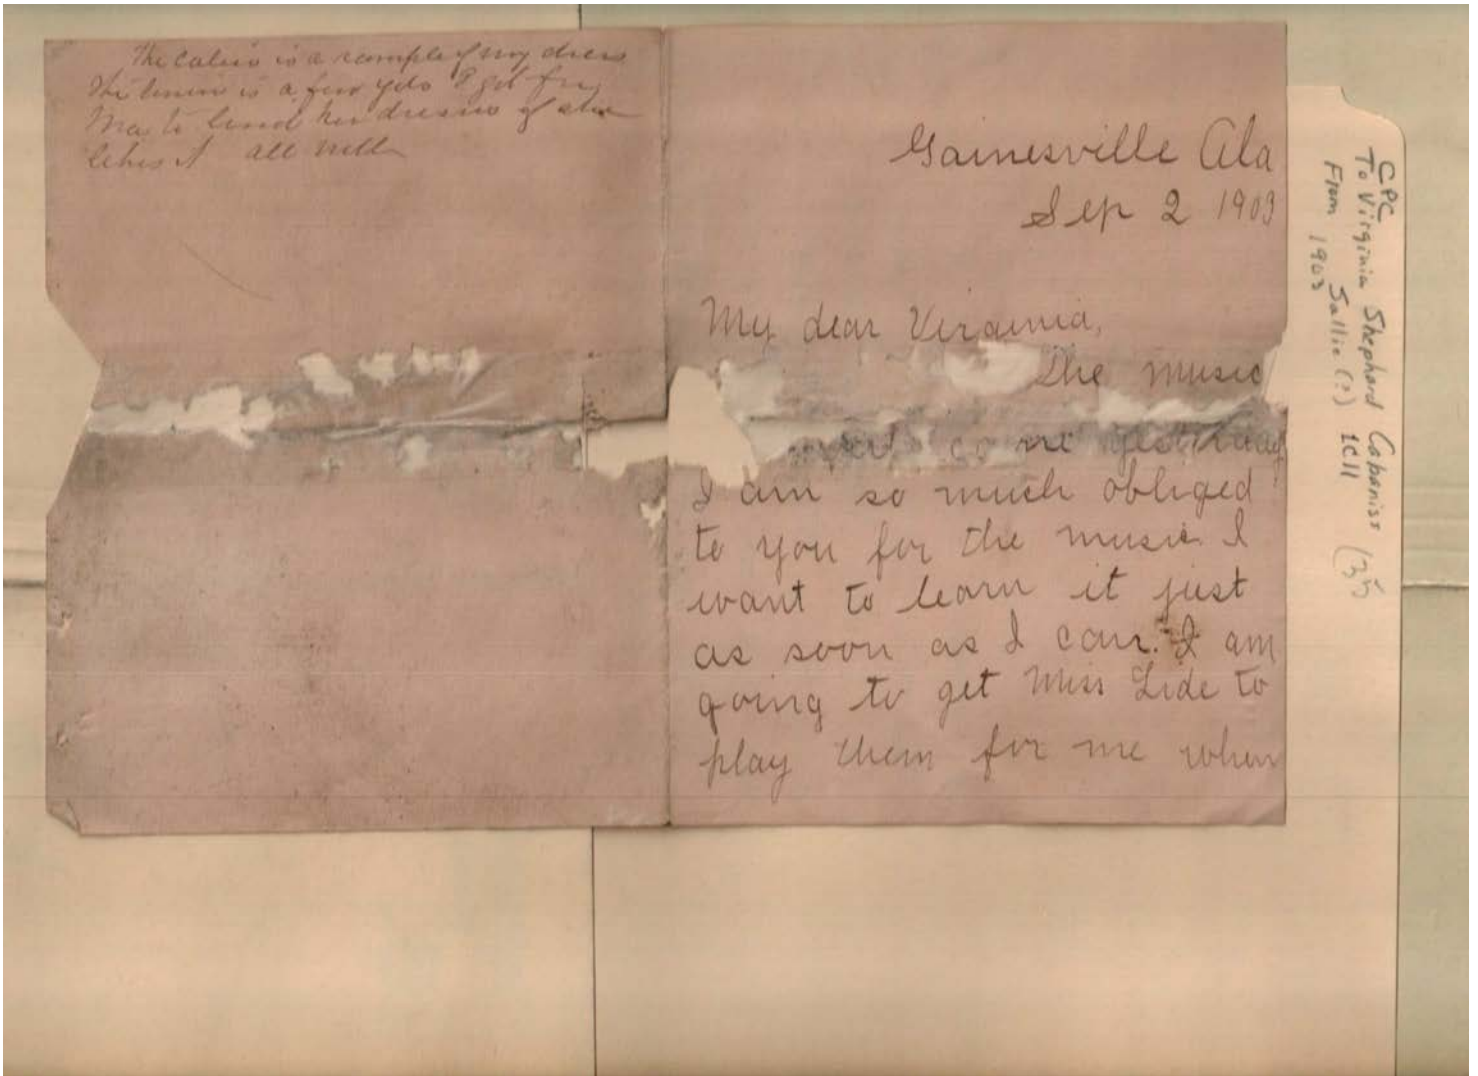 The calico is a sample of my dress
The linen is a few yds I got for
May to lend her dresses if she
likes it all well
Gainesville Ala
Sep 2 1903
My dear Virginia,
The music
come yesterday
I am so much obliged
to you for the music. I
want to learn it just
as soon as I can. I am
going to get Miss Lide to
play them for me when
CPC
To Virginia Shephard Cabaniss (35
From Sallie (?) LCH
1903